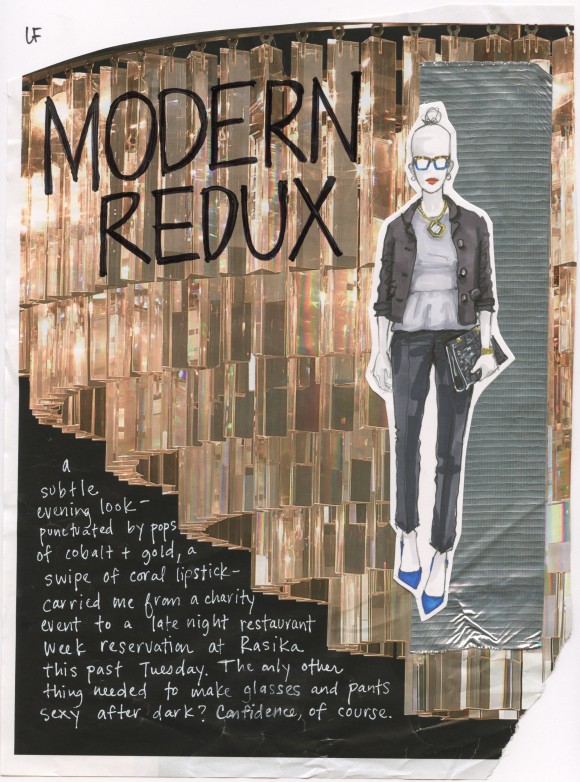 LF
MODERN
REDUX
a
subtle
evening look-
punctuated by pops
of cobalt + gold, a
swipe of coral lipstick-
carried me from a charity
event to a late night restaurant
week reservation at Rasika
this past Tuesday. The only other
thing needed to make glasses and pants
sexy after dark? Confidence, of course.